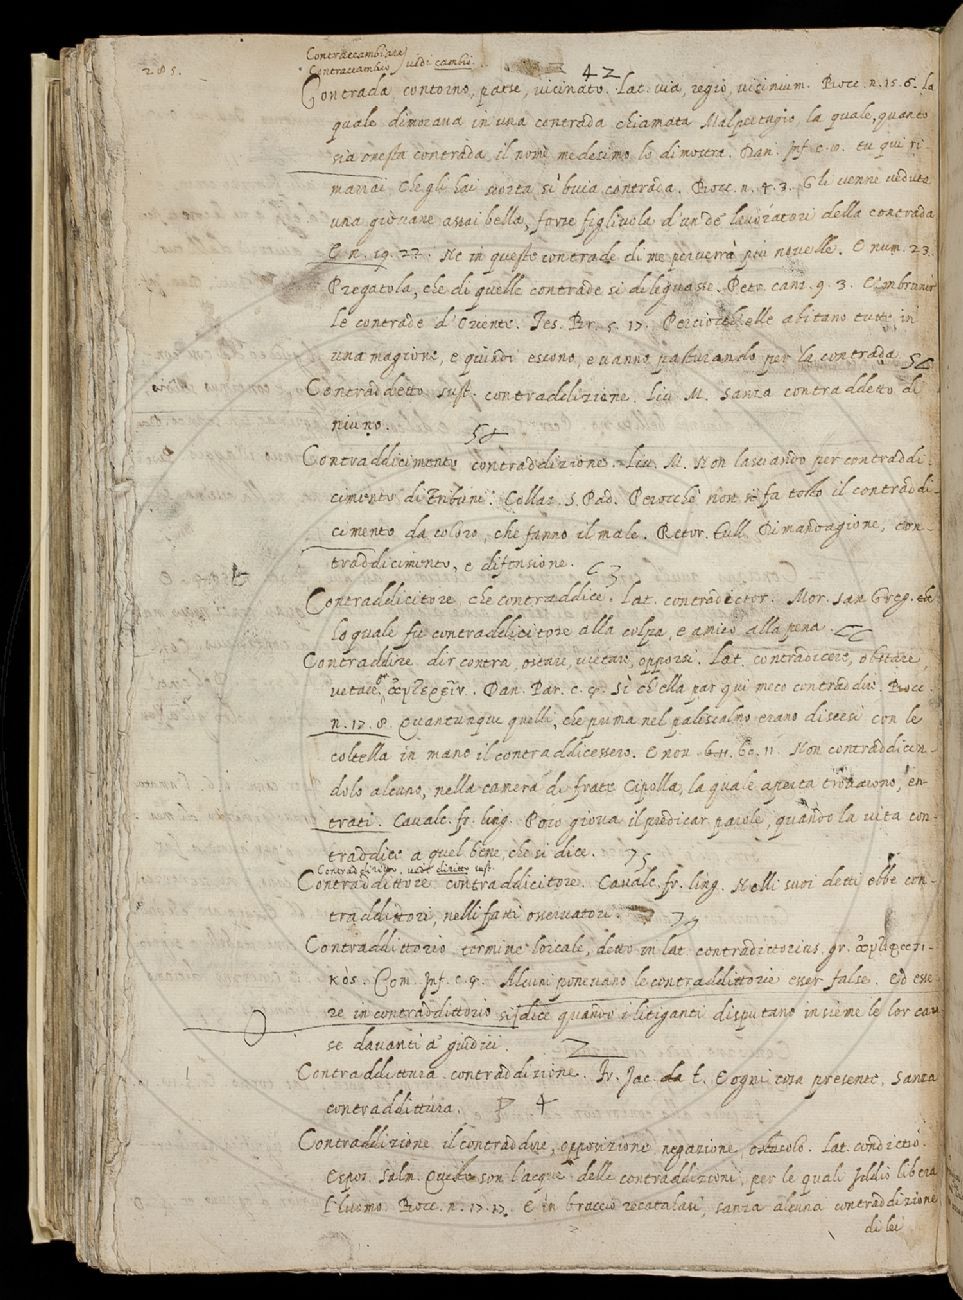 285.
Contraccambiare
Contraccambio } vedi cambio.
42
Contrada, contorno, paese, vicinato. Lat. via, regio, vicinium. Bocc. n. 15. 6. la
quale dimoraua in una contrada chiamata Malpertugio, la quale, quanto
sia onesta contrada, il nome medesimo lo dimostra. Dan. Inf. c. 8. tu qui ri-
marrai, che gli hai scorta sì buia contrada. Bocc. n. 4. 3. Gli venne veduta
una giovane assai bella, forse figliuola d'un de' lavoratori della contrada
E n. 19. 22. Ne in queste contrade di me perverrà più novelle. E num. 23.
Pregatola, che di quelle contrade si dileguasse. Petr. canz. 9. 3. E 'mbrunir
le contrade d'Oriente. Tes. Br. 5. 17. Perciocch'elle abitano tutte in
una magione, e quindi escono, e vanno pasturando per la contrada
Contraddetto sust. contraddizione. Liv. M. Sanza contraddetto di
niuno.
Contraddicimento contraddizione. Liv. M. Non lasciando per contraddi-
cimento di Tribuni. Collaz. S. Pad. Perocchè non si fa tosto il contraddi-
cimento da coloro, che fanno il male. Retor. Tull. Dimandagione, con-
traddicimento, e difensione.
63
Contraddicitore, che contraddice. Lat. contradictor. Mor. San Greg.
lo quale fu contraddicitore alla colpa, e amico alla pena.
Contraddire dir contra, ostare, vietare, opporsi. Lat. contradicere, obstare,
vetare, Dan. Par. c. 4. Sì ch'ella par qui meco contraddir. Bocc.
n. 17. 8. Quantunque quelli, che prima nel paliscalmo erano discesi con le
coltella in mano il contraddicessero. E nov. 60. 11. Non contraddicen-
dolo alcuno, nella camera di frate Cipolla, la quale aperta trovarono, en-
trati. Cavalc. fr. ling. Poco giova il predicar parole, quando la vita con-
traddice a quel bene, che si dice.
75
Contraddiritto. vedi diritto sust.
Contraddittore contraddicitore. Cavalc. fr. ling. Nelli suoi detti ebbe con-
traddittori, nelli fatti osservatori.
Contraddittorio termine loicale, detto in lat. contradictorius. gr.
Com. Inf. c. 4. Alcuni ponevano le contraddittorie esser false. Ed esse-
re in contraddittorio si dice quando i litiganti disputano insieme le lor cau-
se davanti a' giudici.
Contraddittura contraddizione. Fr. Jac. da t. E ogni cosa presente, Sanza
contraddittura.
4
Contraddizione il contraddire, opposizione, negazione, ostacolo. Lat.
Espos. Salm. Queste son l'acque delle contraddizioni, per le quali Iddio libera
l'huomo. Bocc. n. 17. 17. E in braccio recatalasi, sanza alcuna contraddizione
di lei